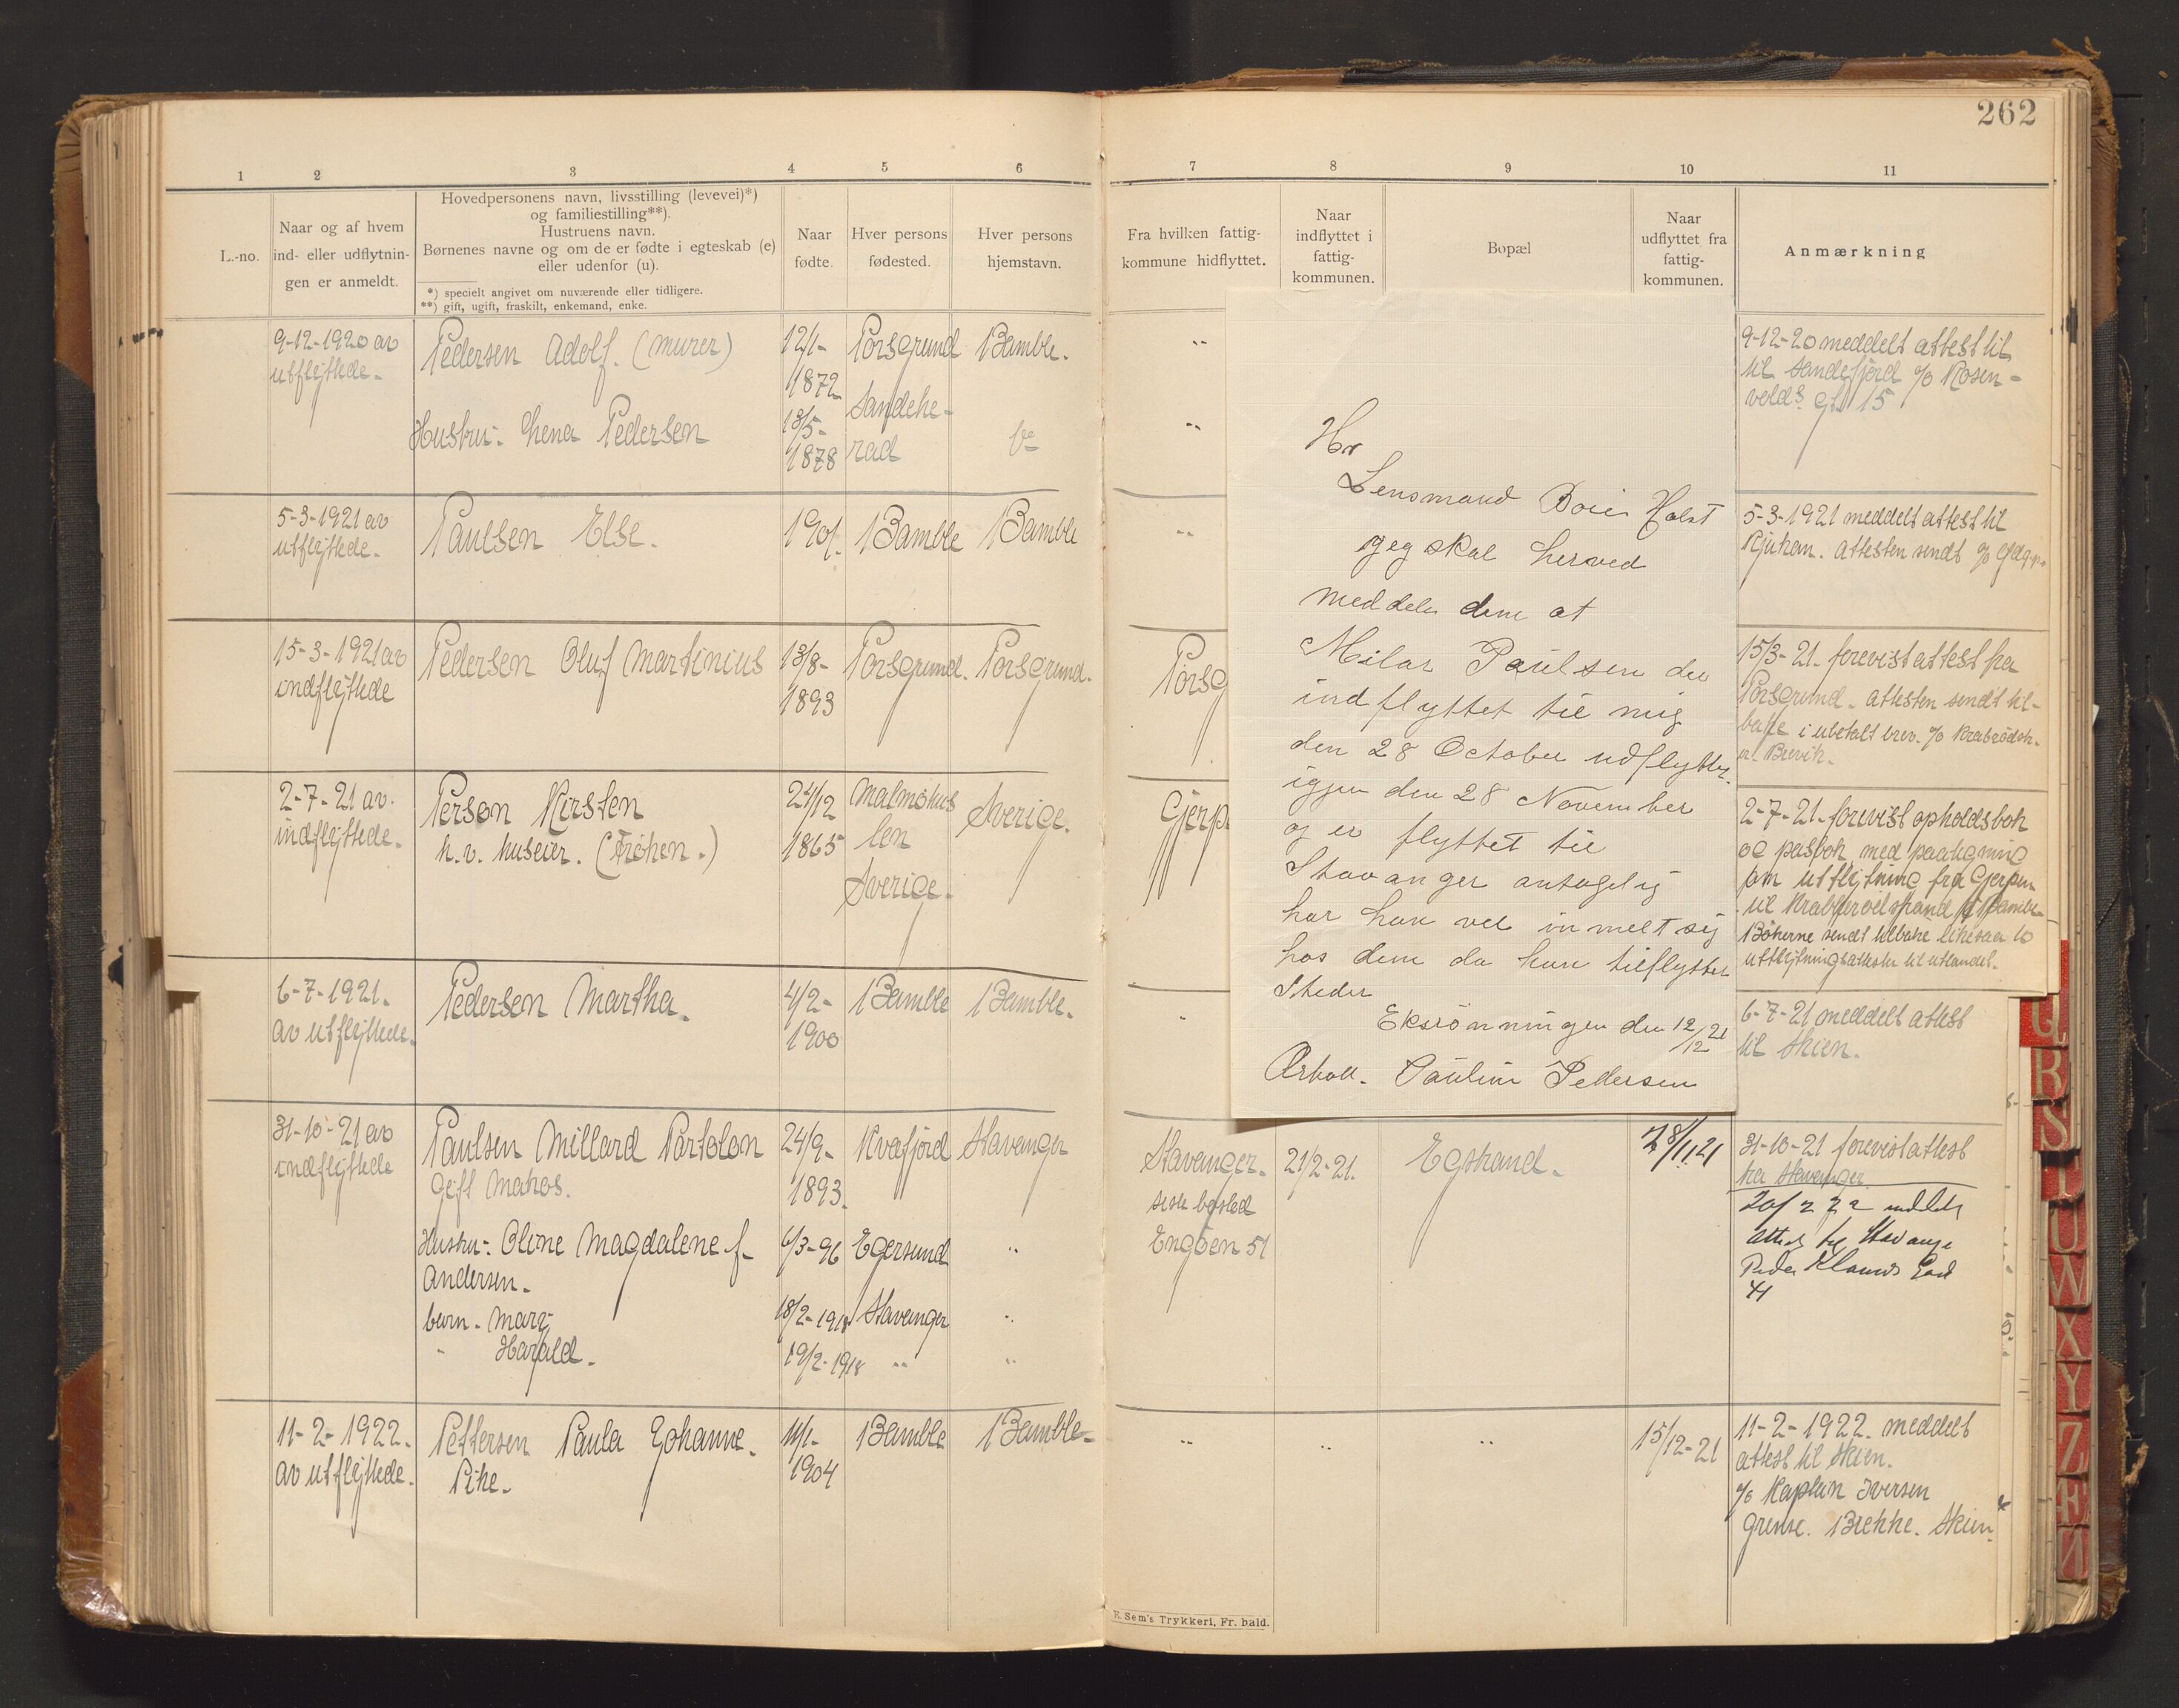 262
1 2 3 4 5 6 7 8 9 10 11
L.-no.
Naar og af hvem
ind- eller udflytnin-
gen er anmeldt.
Hovedpersonens navn, livsstilling (levevei)*)
og familiestilling**).
Hustruens navn.
Børnenes navne og om de er fødte i egteskab (e)
eller udenfor (u).
*) specielt angivet om nuværende eller tidligere.
**) gift, ugift, fraskilt, enkemand, enke.
Naar
fødte.
Hver persons
fødested.
Hver persons
hjemstavn.
Fra hvilken fattig-
kommune hidflyttet.
Naar
indflyttet i
fattig-
kommunen.
Bopæl
Naar
udflyttet fra
fattig-
kommunen.
Anmærkning
9-12-1920 av
utflyttede.
Pedersen Adolf. (murer)
12/1-
1872
Porsgrund
Bamble.
Hustru: Lena Pedersen
13/5-
1878
Sandehe-
rad
9-12-20 meddelt attest til
til Sandefjord c/o Rosen-
volds gt 15
5-3-1921 av
utflyttede.
Paulsen Else.
1901.
Bamble
Bamble
5-3-1921 meddelt attest til
Rjukan. attesten sendt
15-3-1921 av
indflyttede
Pedersen Oluf Martinius
13/8-
1893
Porsgrund.
Porsgrund.
Porsg
15/3-21. forevist attest fra
Porsgrund. attesten sendt til-
bake i ubetalt brev.
Brevik.
2-7-21 av.
indflyttede.
Person Kirsten
h.v. huseier. (Frøken.)
24/12
1865
Malmøhus
len
Sverige.
Sverige.
Gjerp
2-7-21. forevist opholdsbok
og pasbok med paategning
om utflytning fra Gjerpen
til strand Bamble
Bøkerne sendt tilbake likesaa 10
utflytningsattester til utlandet.
6-7-1921.
av utflyttede.
Pedersen Martha.
4/2-
1900
Bamble
Bamble.
6-7-21 meddelt attest
til Skien.
Hr
Lensmand Boie Holst
jeg skal herved
meddele dem at
Milar Paulsen der
indflyttet til mig
den 28 October udflytter
igjen den 28 November
og er flyttet til
Stavanger antagelig
har han vel inmelt sig
hos dem da han tilflyttet
Stedet
Eksrønningen den 12/12 21
Ærbött. Pauline Pedersen
31-10-21 av
indflyttede
Paulsen Millard Partolon
Gift Matros.
24/9-
1893.
Kvæfjord
Stavanger
Stavanger.
siste bosted
Engøen 51
21/2-21.
Egstrand.
28/11 21
31-10-21 forevist attest
fra Stavanger.
20/2 22 meddelt
attest til Stavanger
Peder Klows Gade
41
Hustru: Oline Magdalene f.
Andersen.
6/3-96
Egersund
"
barn. Mary
18/2-1918
Stavanger
"
" Harald.
19/2-1918
"
"
11-2-1922.
av utflyttede.
Pettersen Paula Johanne.
Pike.
11/1-
1904
Bamble
Bamble.
"
"
"
15/12-21
11-2-1922. meddelt
attest til Skien.
c/o Kaptein Iversen
Grense. Brekke. Skien.
E. Sem's Trykkeri, Fr. hald.
Q
R
S
T
U
W
X
Y
Z
Æ